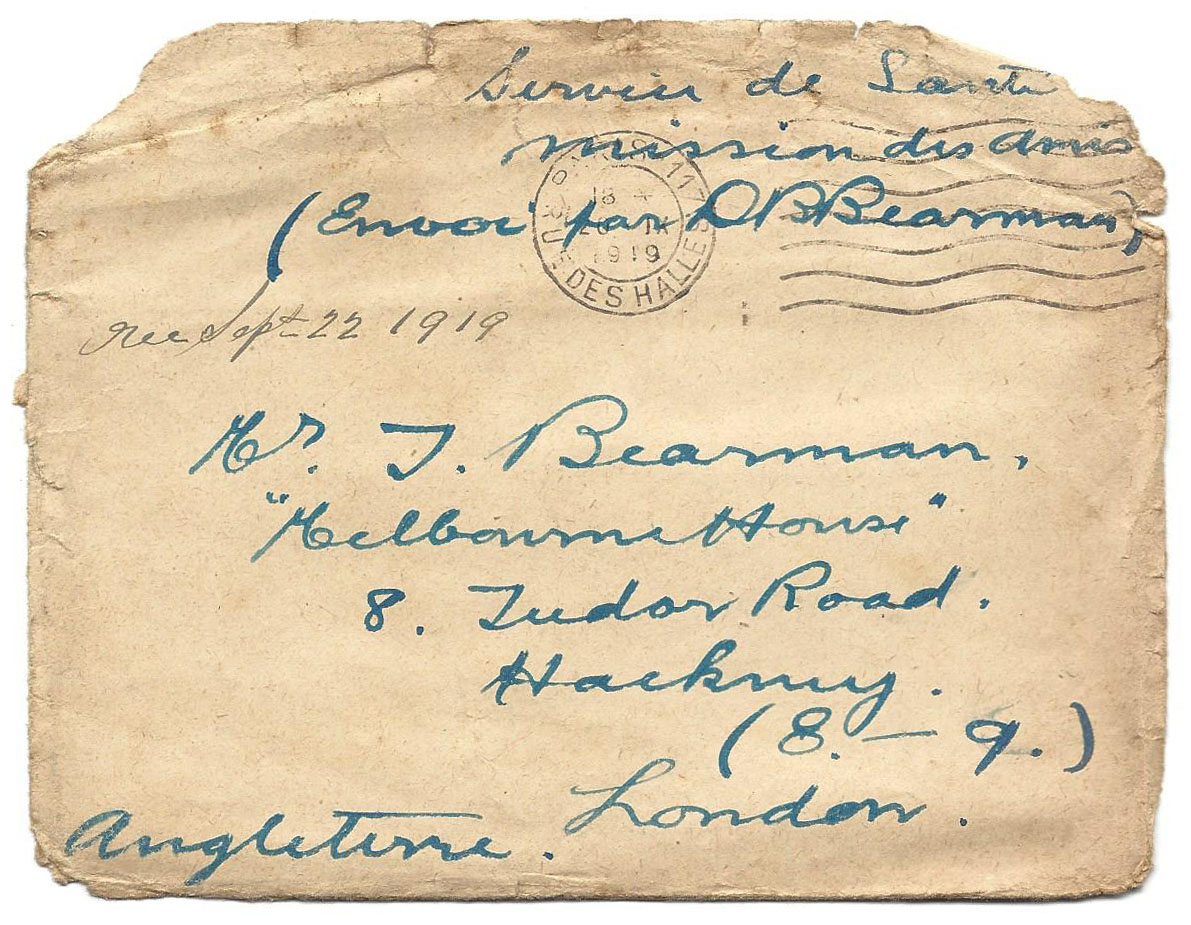 Service de Santé
Mission des Amis
(Envoi par D B Bearman)
117
18 *
IX
1919
RUE DES HALLES
rec Sept 22 1919
Mr. T. Bearman,
"Melbourne House"
8. Tudor Road.
Hackney.
(E. — 9.)
London.
Angleterre.